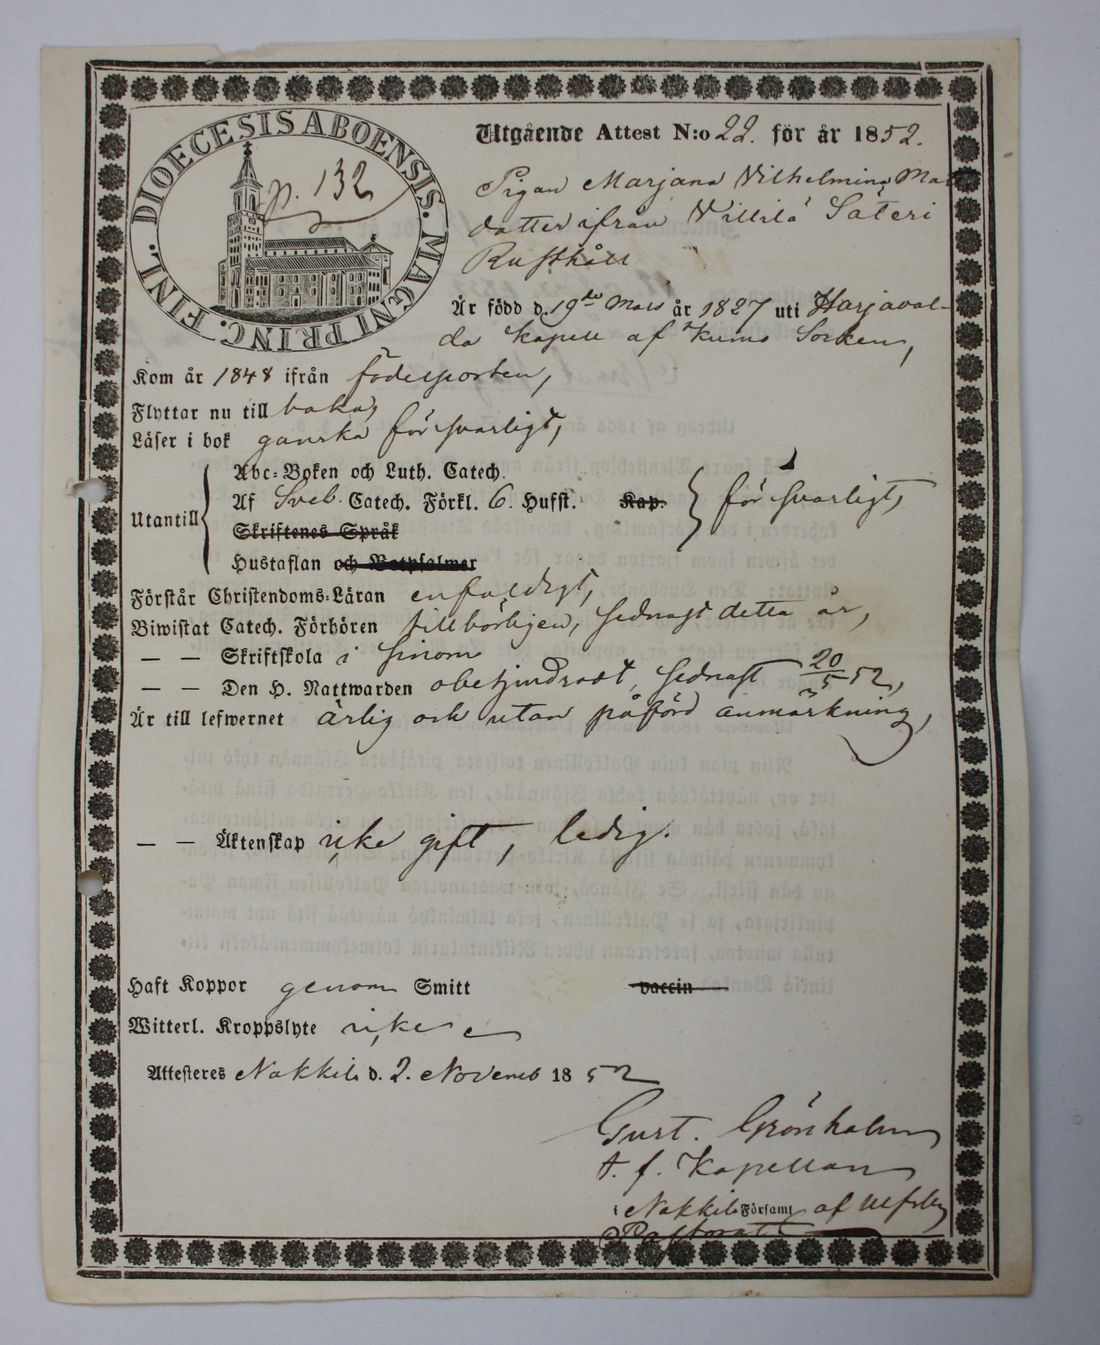 DIOECESIS ABOENSIS. MAGNI PRINC. FINL.
p. 132
Utgående Attest N:o 22. för år 1852.
Pigan Marjana Vilhelmina
dotter ifrån Villilä Säteri
Rusthåll
Är född d. 19de Mars år 1827 uti Harjaval-
da Kapell af Kumo Socken,
Kom år 1848 ifrån födesporten,
Flyttar nu till baka,
Läser i bok ganska försvarligt,
Abc-Boken och Luth. Catech.
Af Sveb. Catech. Förkl. 6. Hufst. Kap.
Utantill försvarligt,
Skriftenes Språk
Hustaflan och Botpsalmer
Förstår Christendoms-Läran enfaldigt,
Biwistat Catech. Förhören tillbörligen, sednast detta år,
— — Skriftskola i sinom
— — Den H. Nattwarden obehindradt, sednast 20/5 52,
Är till lefwernet ärlig och utan påförd anmärkning,
— — Äktenskap icke gift, ledig.
Haft Koppor genom Smitt vaccin
Witterl. Kroppslyte icke
Attesteres Nakkila d. 2. Novemb 1852
Gust. Grönholm
t. f. Kapellan
i Nakkila Församl. af Ulfsby
Pastorat